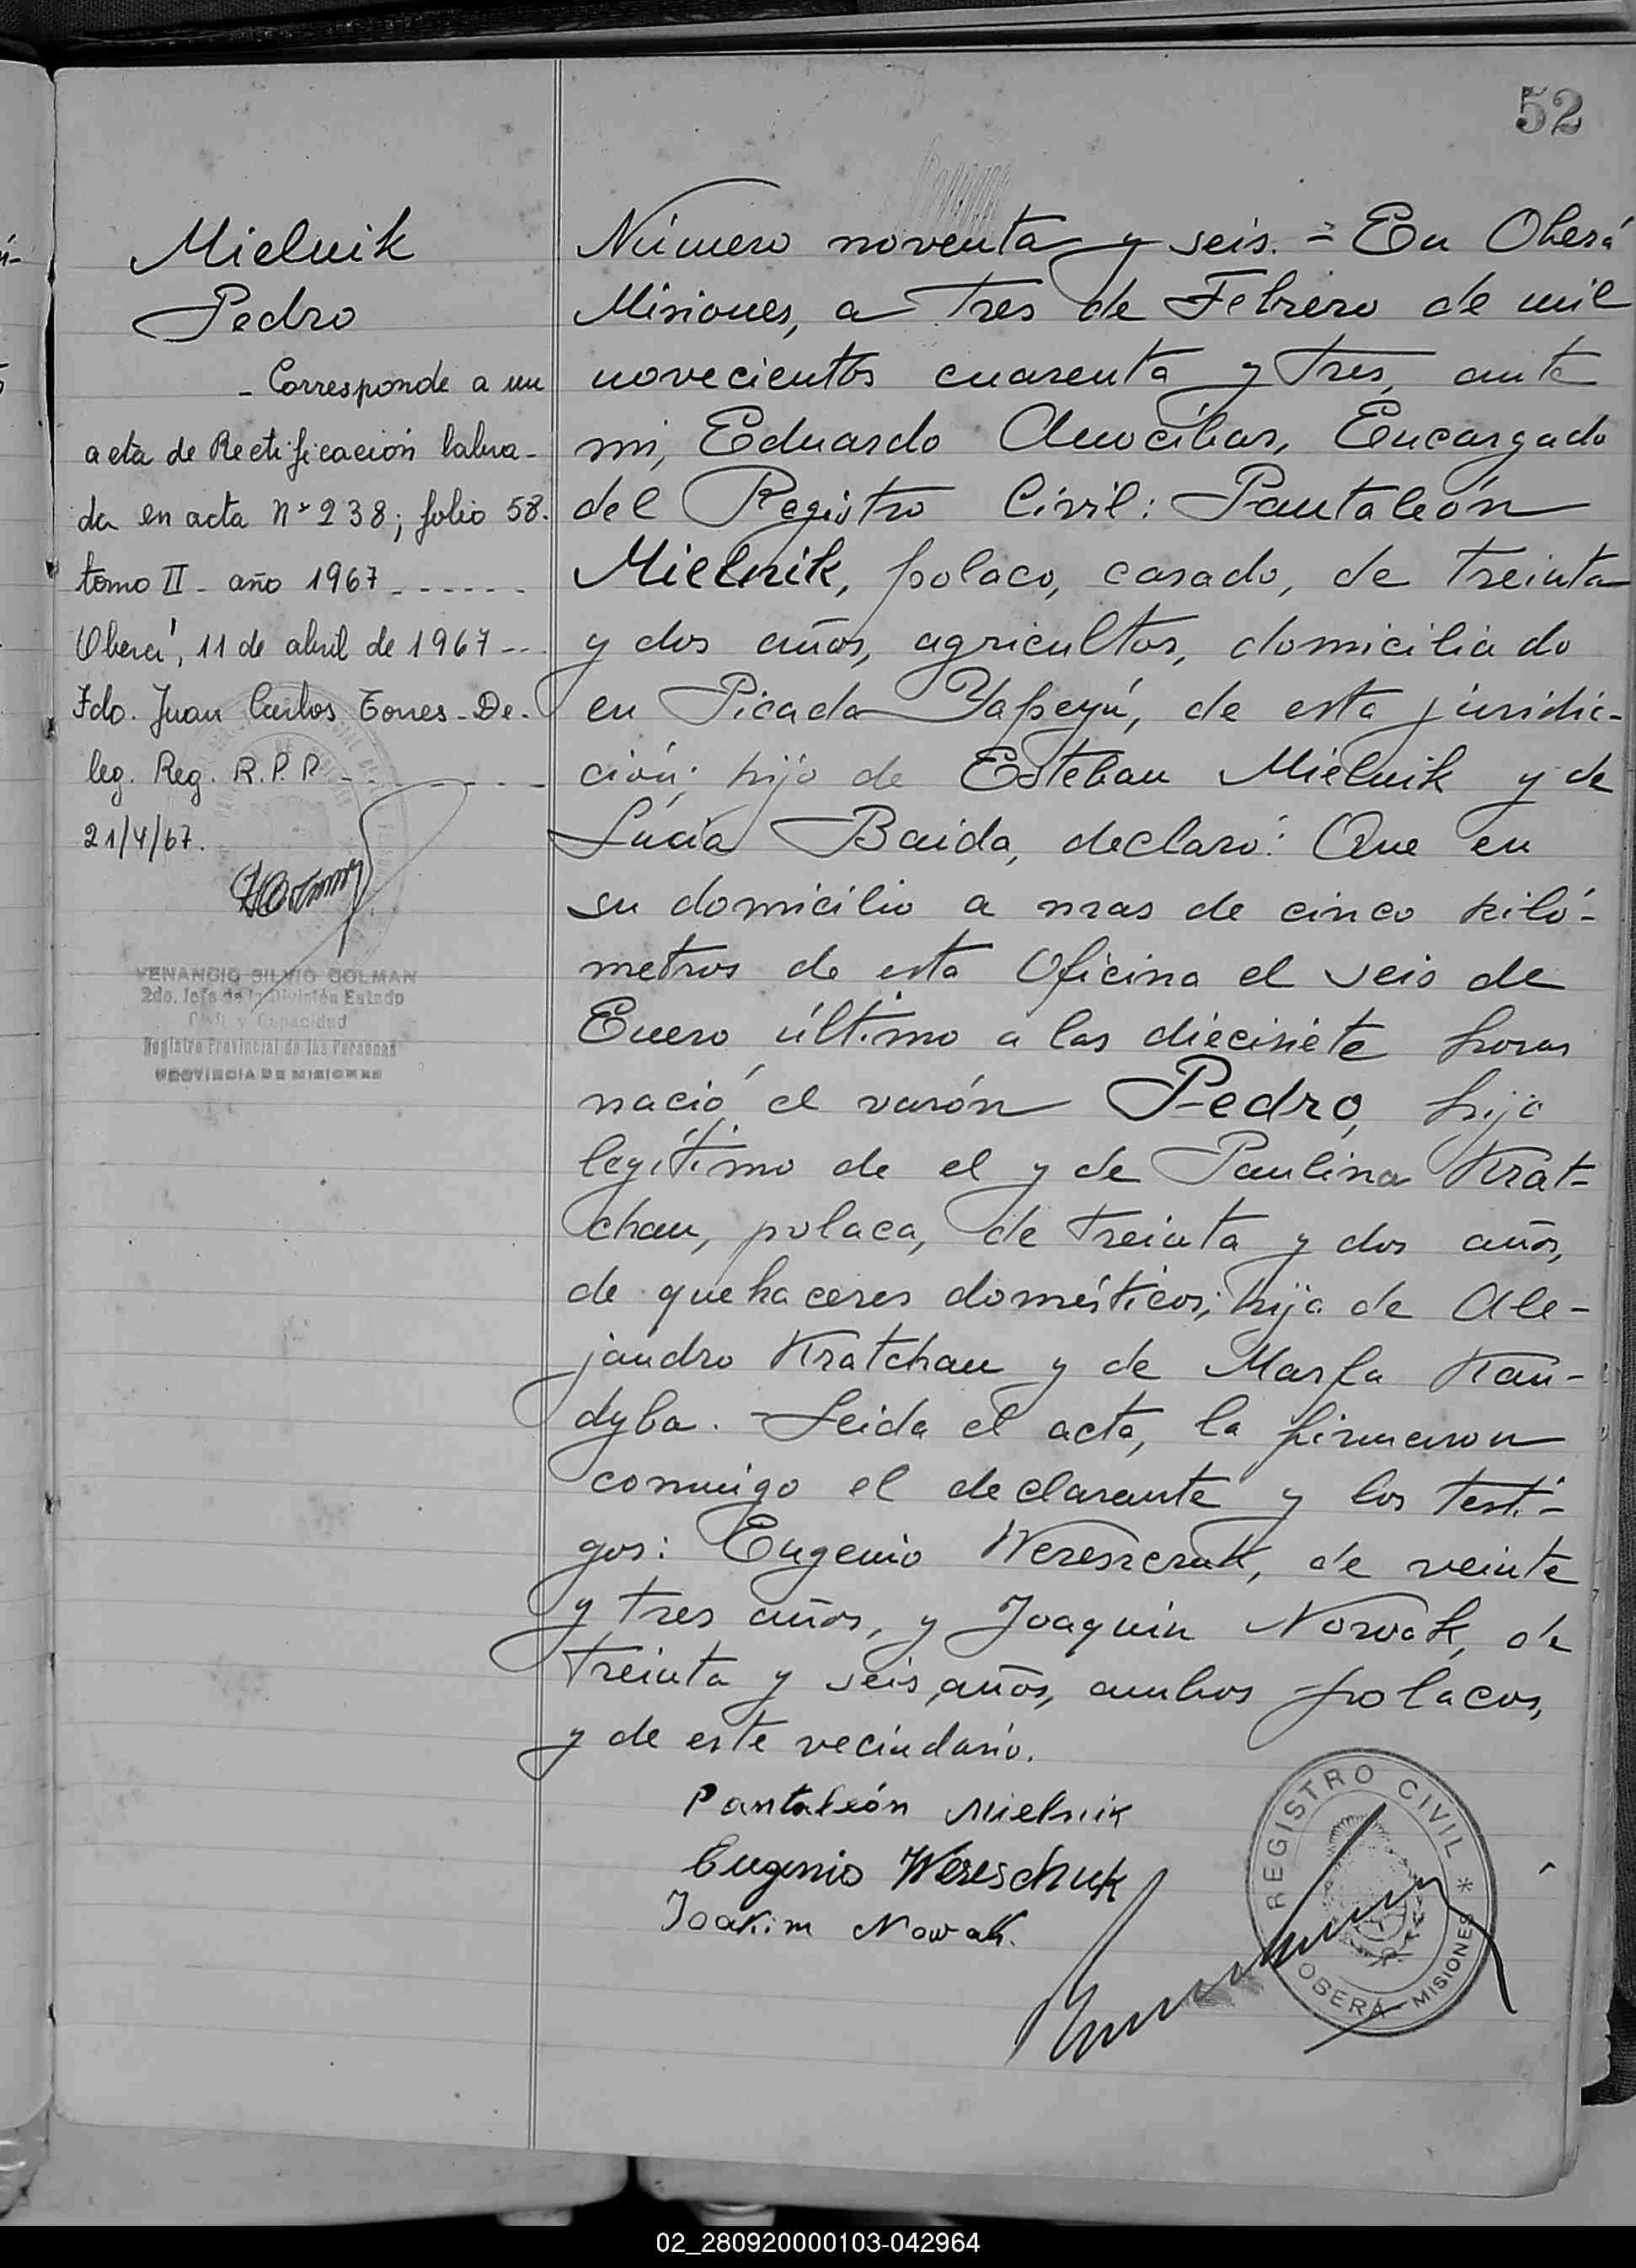 52
Mielnik
Pedro
- Corresponde a un
acta de Rectificación labra-
da en acta Nº 238; folio 58.
tomo II - año 1967 - - - - - -
Oberá, 11 de abril de 1967 - - -
Fdo. Juan Carlos Torres - De-
leg. Reg. R.P.P. - - - - - -
21/4/67.
VENANCIO SILVIO GOLMAN
2do. Jefe de la División Estado
Civil y Capacidad
Registro Provincial de las Personas
PROVINCIA DE MISIONES
Número noventa y seis. - En Oberá
Misiones, a tres de Febrero de mil
novecientos cuarenta y tres, ante
mi, Eduardo Amocibar, Encargado
del Registro Civil: Pantaleón
Mielnik, polaco, casado, de treinta
y dos años, agricultor, domiciliado
en Picada Yapeyú, de esta jurisdic-
ción; hijo de Esteban Mielnik y de
Lucía Baida, declaró: Que en
su domicilio a mas de cinco kiló-
metros de esta Oficina el seis de
Enero último a las diecisiete horas
nació el varón Pedro, hijo
legítimo de el y de Paulina Krat-
chan, polaca, de treinta y dos años,
de quehaceres domésticos; hija de Ale-
jandro Kratchan y de Marfa Kan-
dyba. - Leida el acta, la firmaron
conmigo el declarante y los testi-
gos: Eugenio Wereszczuk, de veinte
y tres años, y Joaquin Nowak, de
treinta y seis años, ambos polacos,
y de este vecindario.
Pantaleón Mielnik
Eugenio Wereschuk
Joakim Nowak.
REGISTRO CIVIL *
OBERÁ - MISIONES
02_280920000103-042964